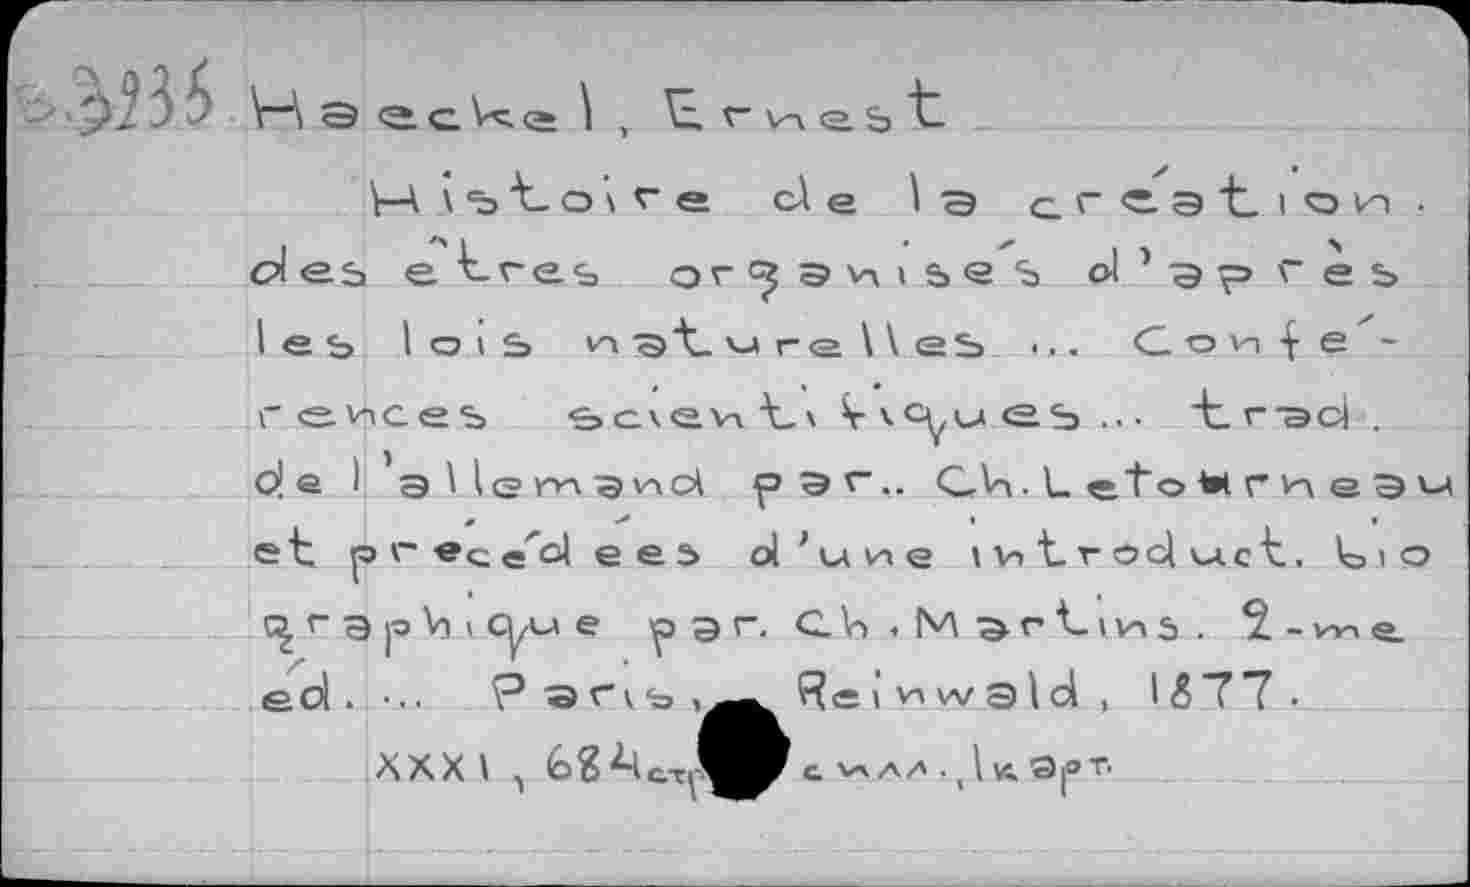 Haeckel, Ernest
Histoire de la création.
des êtres organisés d'après
les lois naturelles ... Confé-
rences scientifiques... trad.
de l'allemand par.. Ch. Letourneau
et précédées d'une introduct. bio
graphique par. Ch. Martins. 2-me
éd. ... Paris, Reinwald, 1877.
XXXI, 684 стр с илл., 1 карт.